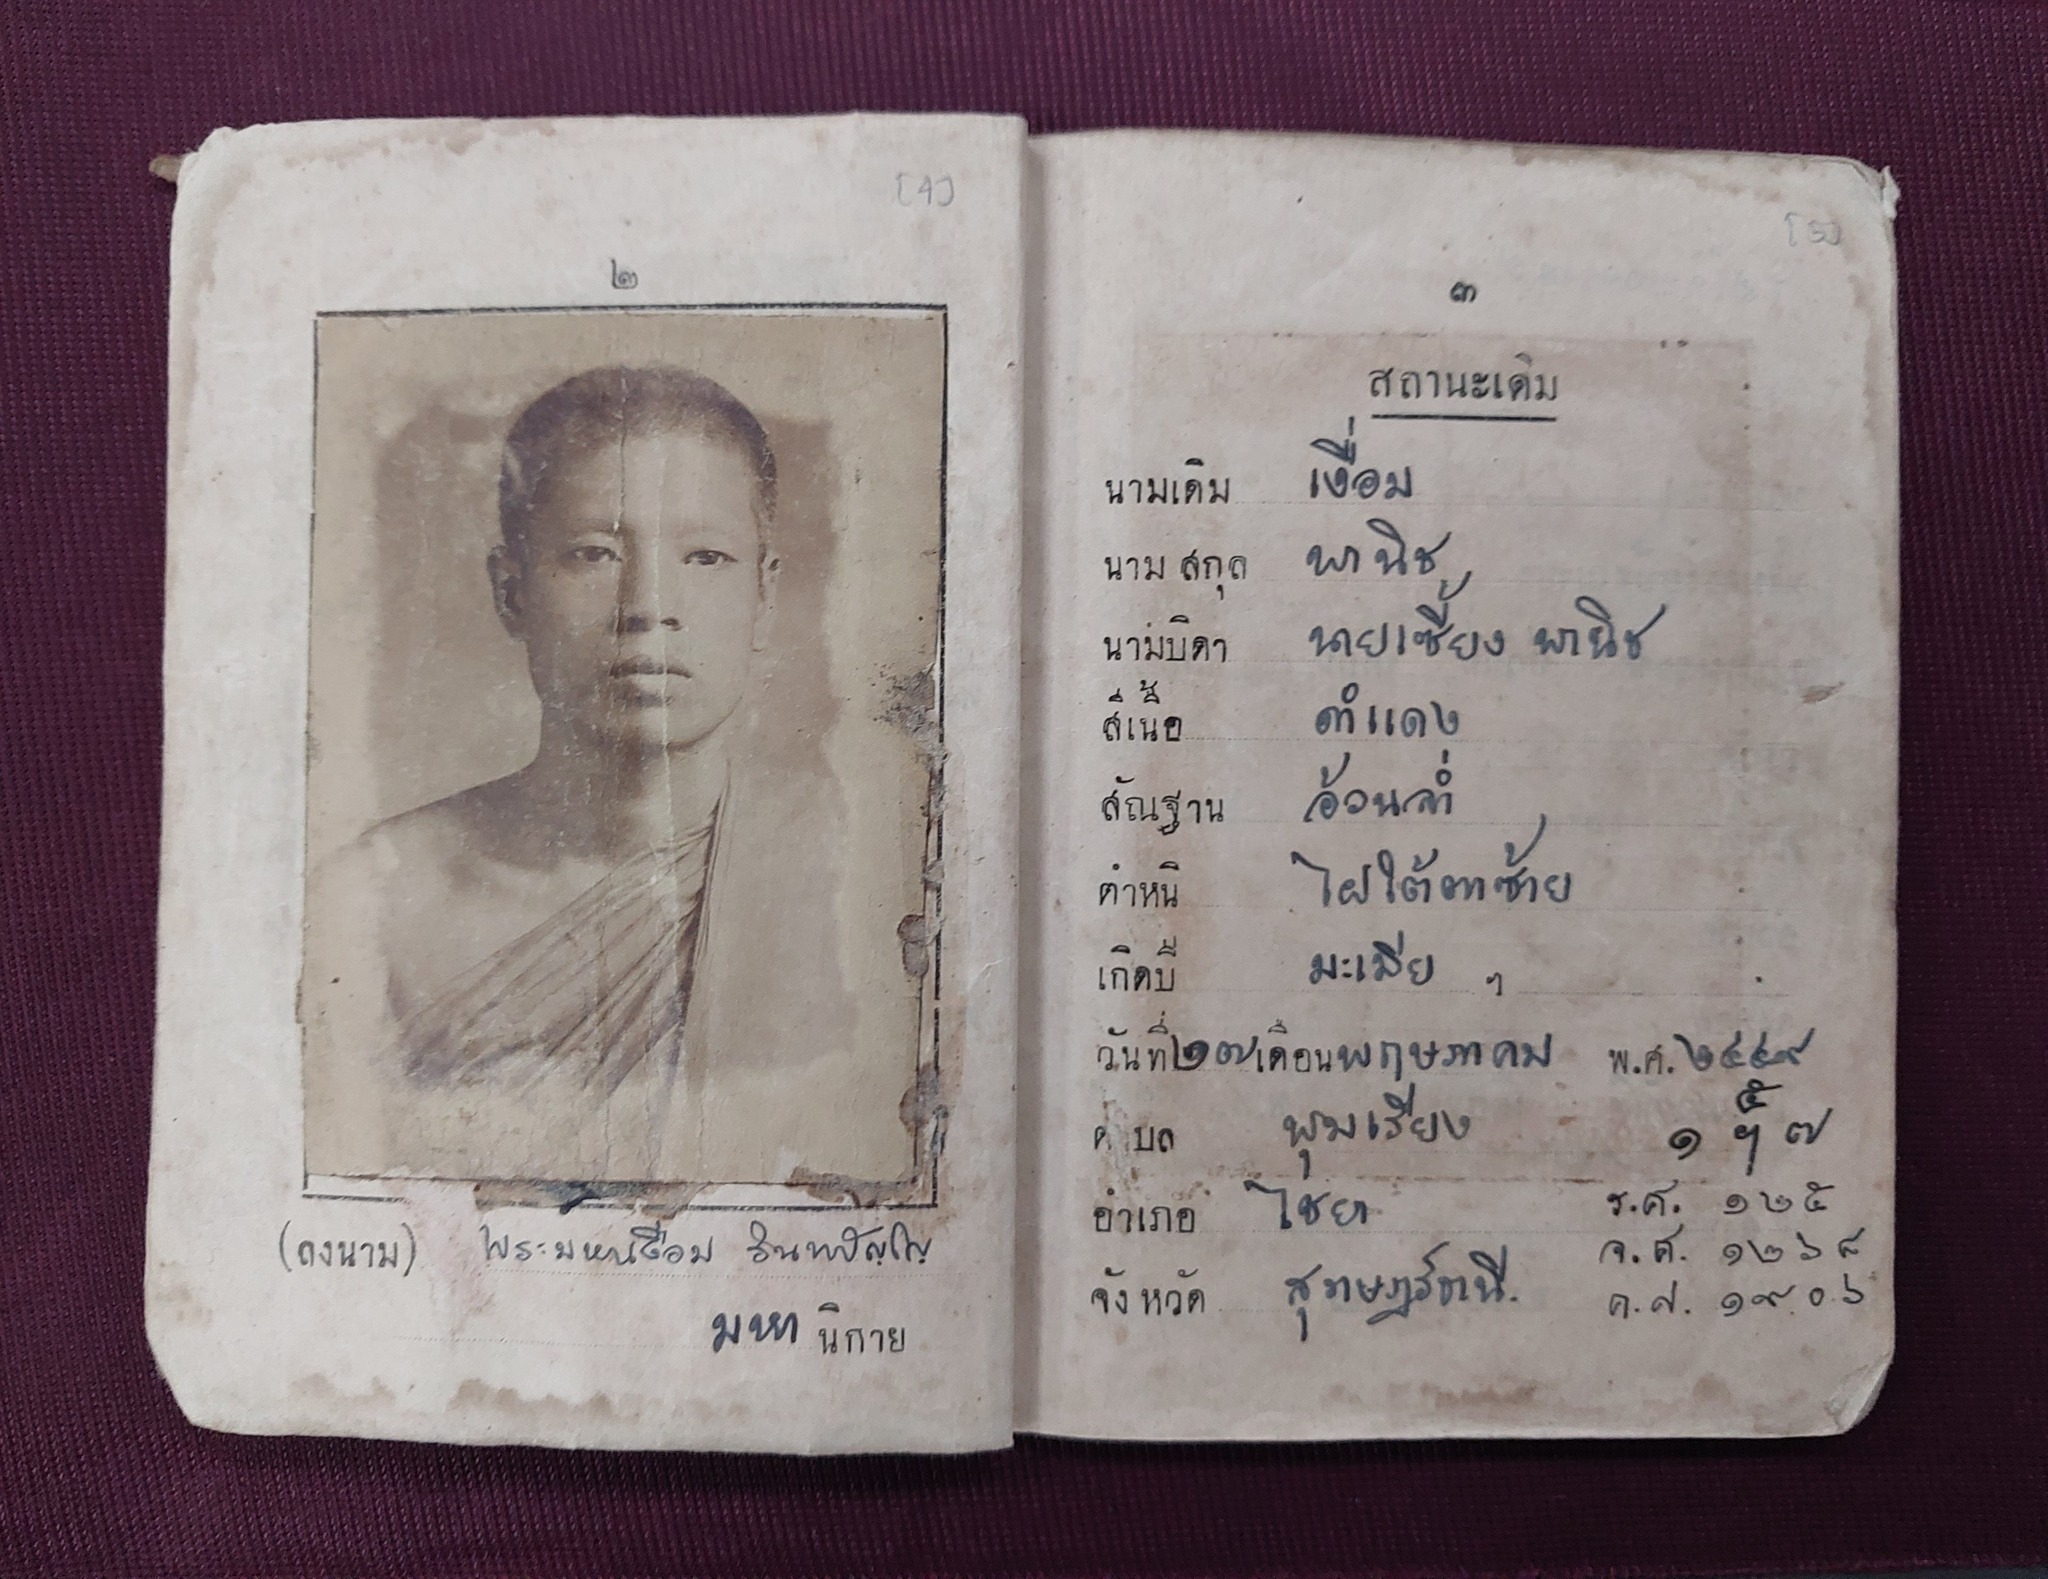 [4]
๒
(ลงนาม) พระมหาเงื่อม อินทปัญโญ
มหา นิกาย
[5]
๓
สถานะเดิม
นามเดิม เงื่อม
นามสกุล พานิช
นามบิดา นายเซี้ยง พานิช
สีเนื้อ ดำแดง
สัณฐาน อ้วนล่ำ
ตำหนิ ไฝใต้ตาซ้าย
เกิดปี มะเมีย
วันที่ ๒๗ เดือน พฤษภาคม พ.ศ. ๒๔๔๙
ตำบล พุมเรียง ๑ ๗
อำเภอ ไชยา ร.ศ. ๑๒๕
จ.ศ. ๑๒๖๘
จังหวัด สุราษฎร์ธานี. ค.ศ. ๑๙๐๖